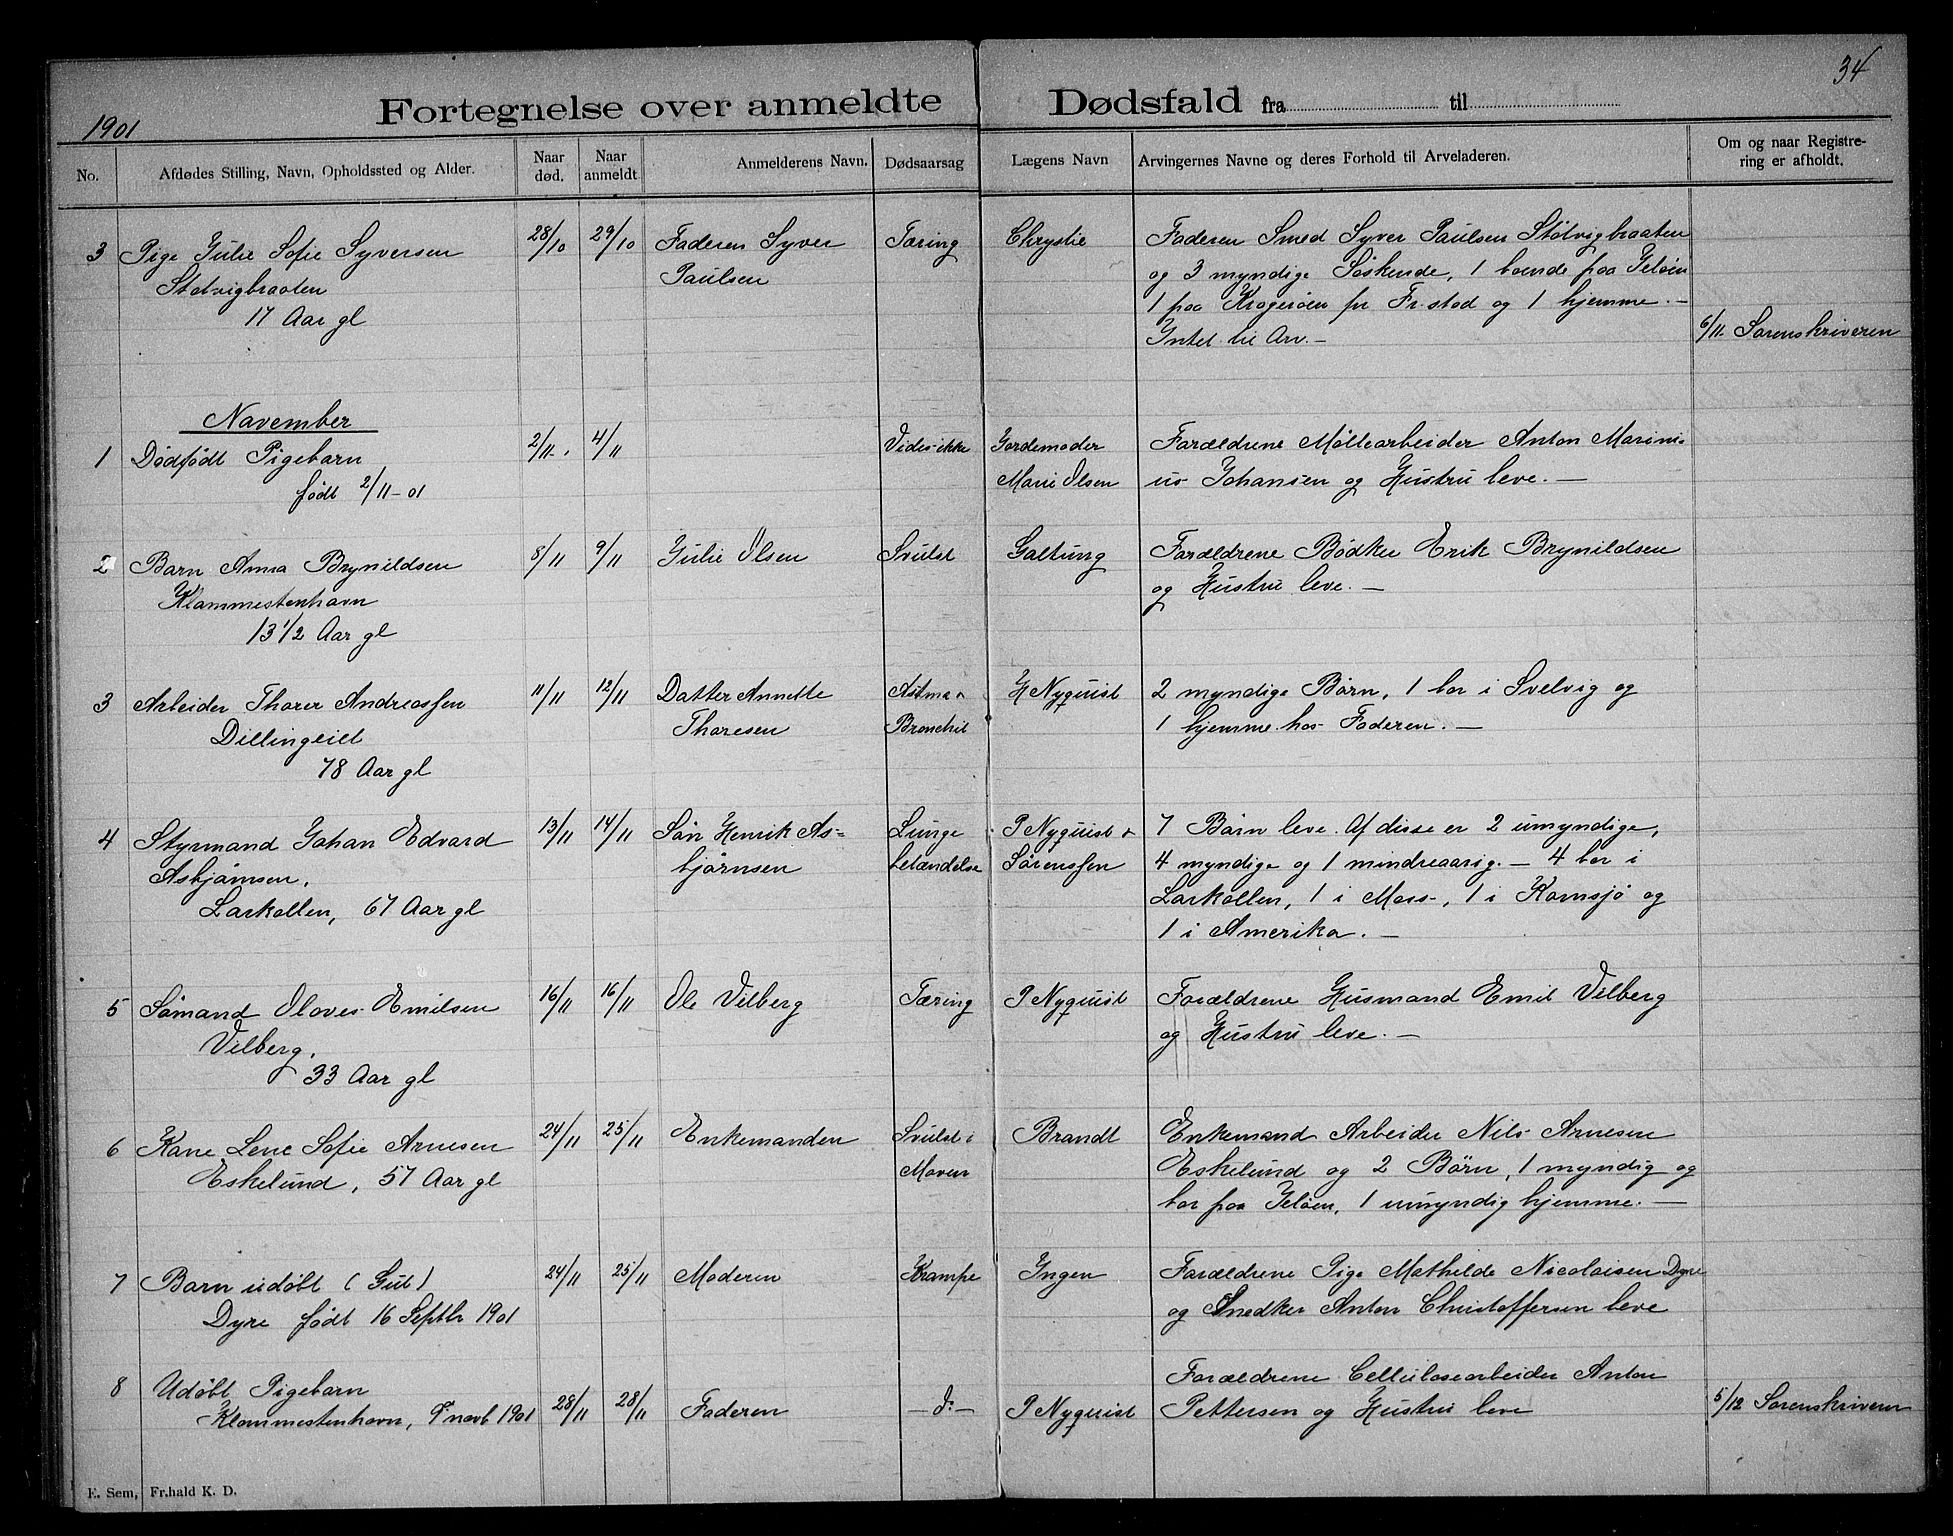 34
1901
Fortegnelse over anmeldte Dødsfald fra til
No.
Afdødes Stilling, Navn, Opholdssted og Alder.
Naar død.
Naar anmeldt.
Anmelderens Navn.
Dødsaarsag
Lægens Navn
Arvingernes Navne og deres Forhold til Arveladeren.
Om og naar Registrering er afholdt.
3 Pige Julie Sofie Syversen 28/10 29/10 Faderen Syver Tæring Chrystie Faderen Smed Syver Paulsen Støtvigbraaten
Støtvigbraaten Paulsen og 3 myndige Søskende, 1 boende paa Jeløen
17 Aar gl 1 paa Kragerøen pr Fr.stad og 1 hjemme. —
Intet til Arv. — 6/11 Sorenskriveren
November
1 Dødfødt Pigebarn 2/11 4/11 Vides ikke Jordemoder Forældrene Møllearbeider Anton Marini-
født 2/11-01 Marie Olsen us Johansen og Hustru leve. —
2 Barn Anna Brynildsen 8/11 9/11 Julie Olsen Svulst Galtung Forældrene Bødker Erik Brynildsen
Klommestenhavn og Hustru leve. —
13 1/2 Aar gl
3 Arbeider Thorer Andreassen 11/11 12/11 Datter Annette Astma & H Nyquist 2 myndige Børn, 1 bor i Svelvig og
Dillingeiet Thoresen Bronchit 1 hjemme hos Faderen. —
78 Aar gl
4 Styrmand Johan Edvard 13/11 14/11 Søn Henrik As= Lunge P Nyquist & 7 Børn leve. Af disse er 2 umyndige,
Asbjørnsen, bjørnsen betændelse Sørenssen 4 myndige og 1 mindreaarig. — 4 bor i
Larkollen, 67 Aar gl Larkollen, 1 i Moss, 1 i Kornsjø og
1 i Amerika. —
5 Sømand Oloves Emilsen 16/11 16/11 Ole Vilberg Tæring P Nyquist Forældrene Husmand Emil Vilberg
Vilberg, og Hustru leve. —
33 Aar gl
6 Kone Lene Sofie Arnesen 24/11 25/11 Enkemanden Svulst i Brandt Enkemand Arbeider Nils Arnesen
Eskelund, 57 Aar gl Maven Eskelund og 2 Børn, 1 myndig og
bor paa Jeløen, 1 umyndig hjemme. —
7 Barn udøbt (Gut) 24/11 25/11 Moderen Krampe Ingen Forældrene Pige Mathilde Nicolaisen Dyre
Dyre født 16 Septbr 1901 og Snedker Anton Christoffersen leve
8 Udøbt Pigebarn Forældrene Cellulosearbeider Anton
Klommestenhavn, 9 novb 1901 28/11 28/11 Faderen — d: — P Nyquist Pettersen og Hustru leve 5/12 Sorenskriveren
E. Sem, Fr.hald K. D.